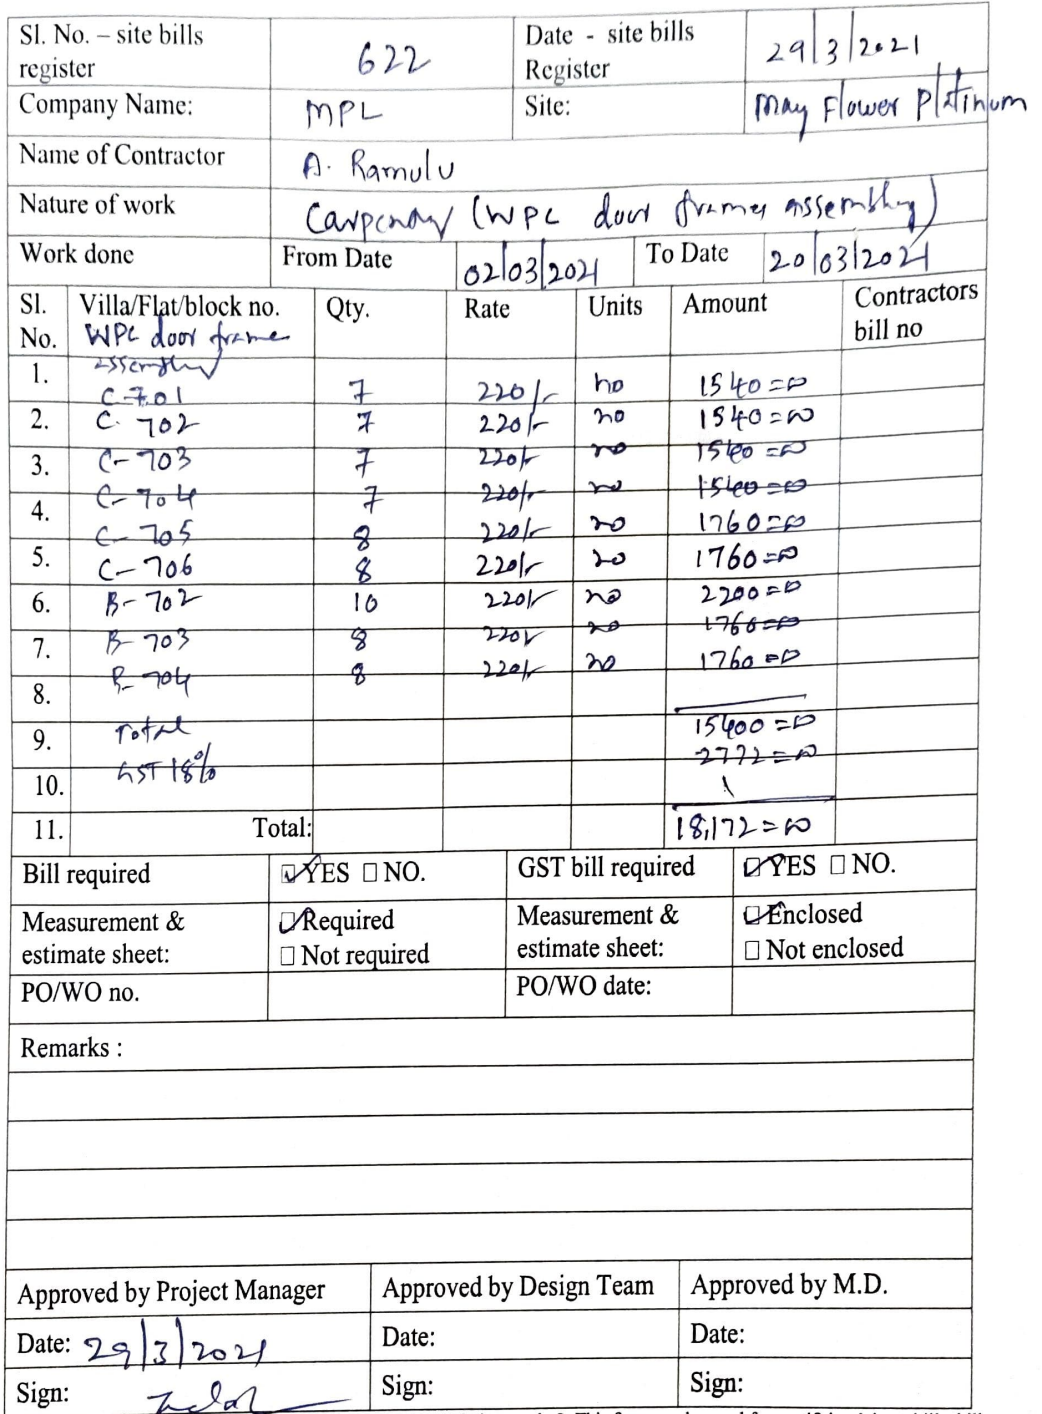 Sl. No. – site bills register 622 Date - site bills Register 29/3/2021
Company Name: MPL Site: May Flower Platinum
Name of Contractor A. Ramulu
Nature of work Carpentry (WPC door frames assembling)
Work done From Date 02/03/2021 To Date 20/03/2021
Sl. No. Villa/Flat/block no. Qty. Rate Units Amount Contractors bill no
WPC door frame
assembly
1. C-701 7 220/- no 1540=00
2. C-702 7 220/- no 1540=00
3. C-703 7 220/- no 1540=00
4. C-704 7 220/- no 1540=00
C-705 8 220/- no 1760=00
5. C-706 8 220/- no 1760=00
6. B-702 10 220/- no 2200=00
7. B-703 8 220/- no 1760=00
8. B-704 8 220/- no 1760=00
9. Total 15400=00
10. GST 18% 2772=00
11. Total: 18,172=00
Bill required YES NO. GST bill required YES NO.
Measurement & estimate sheet: Required Not required Measurement & estimate sheet: Enclosed Not enclosed
PO/WO no. PO/WO date:
Remarks :
Approved by Project Manager Approved by Design Team Approved by M.D.
Date: 29/3/2021 Date: Date:
Sign: Sign: Sign: